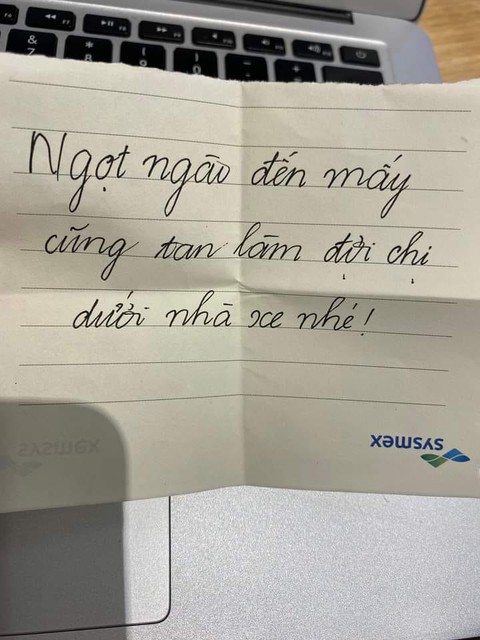 Ngọt ngào đến mấy
cũng tan làm đợi chị
dưới nhà xe nhé!
sysmex